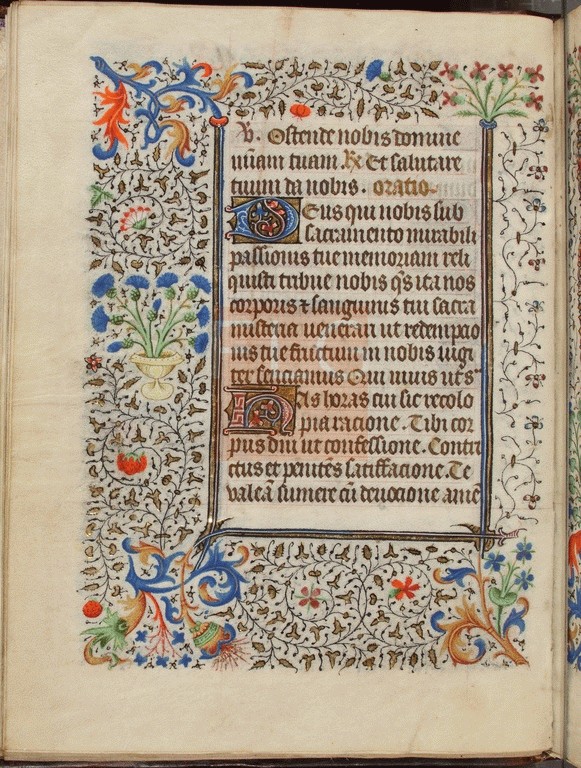 V. Ostende nobis domine
miam tuam. R Et salutare
tuum da nobis. oratio.
Deus qui nobis sub
sacramento mirabili
passionis tue memoriam reli
quisti tribue nobis qs ita nos
corporis ⁊ sanguinis tui sacra
misteria venerari ut redempcio
nis tue fructum in nobis iugi
ter senciamus Qui vivis ut sͣ
Has horas cui sic recolo
pia racione. Tibi cor
pus dni ut confessione. Contri
ctus et penitēs satiffacione. Te
valeā sumere cū devocione amē